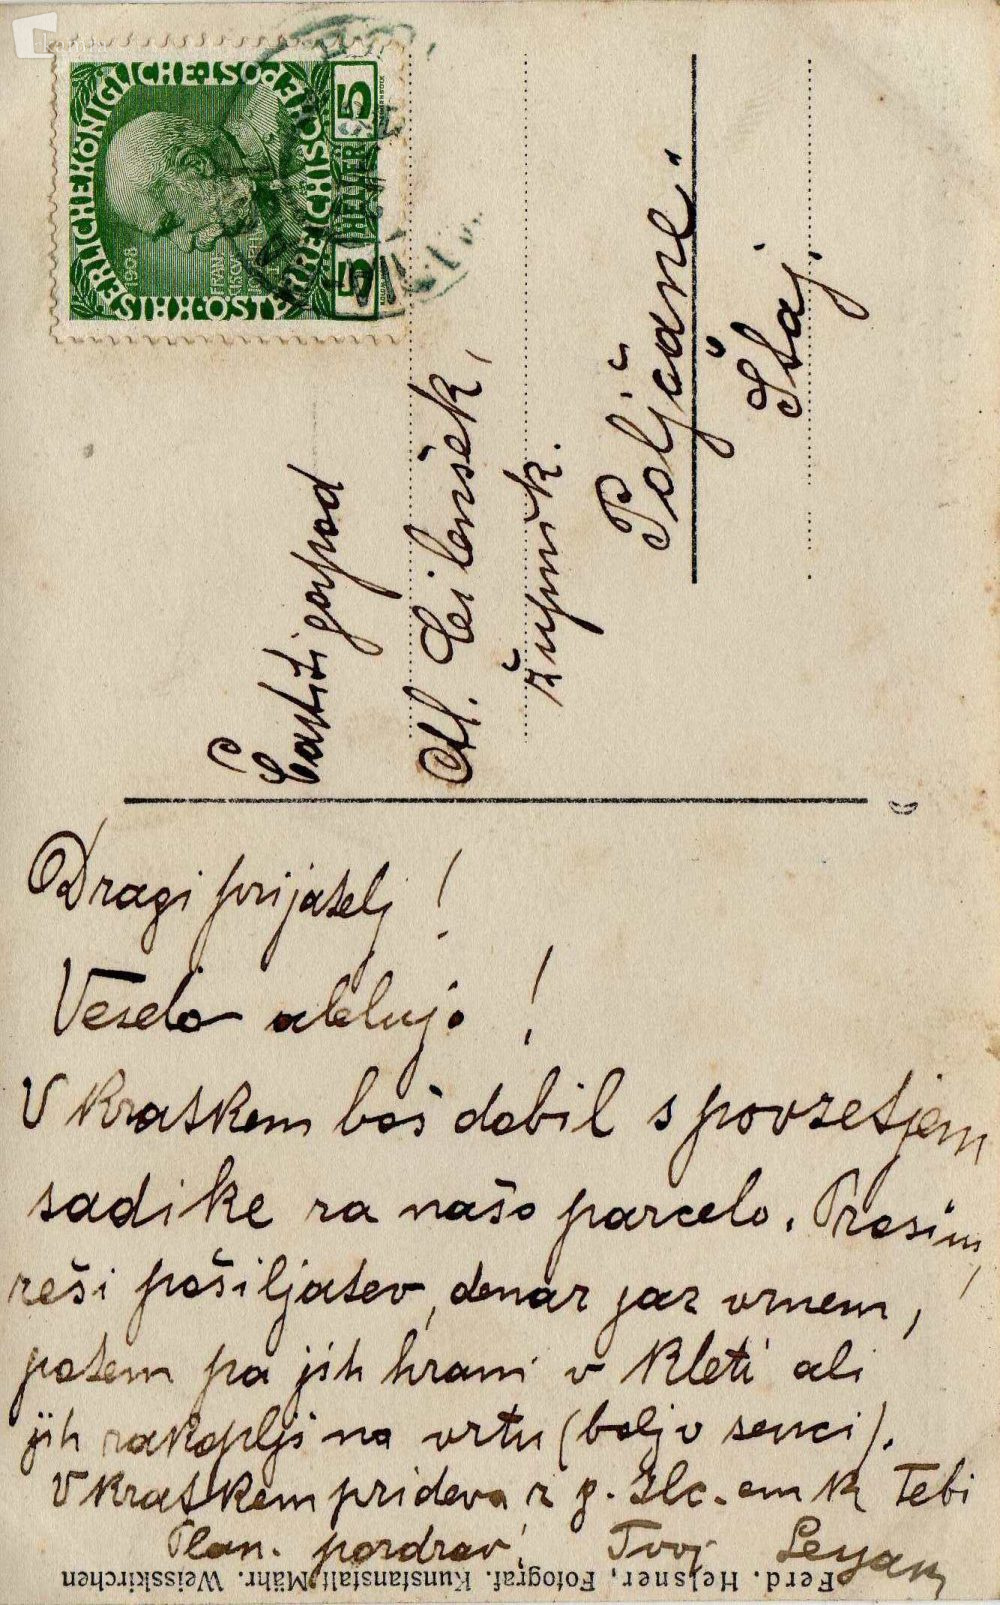 KAISERLICHE KÖNIGLICHE POST
ÖSTERREICHISCHE
5 HELLER 5
1908
Častiti gospod
Cilenšek,
župnik.
Poljčane
Štaj.
Dragi prijatelj!
Veselo alelujo!
V kratkem boš dobil s povzetjem
sadike za našo parcelo. Prosim,
reši pošiljatev, denar jaz vrnem,
potem pa jih hrani v kleti ali
jih zakoplji na vrtu (bolj v senci).
V kratkem prideva z g. em k Tebi
Plan. pozdrav, Tvoj
Ferd. Heisner, Fotograf. Kunstanstalt Mähr. Weisskirchen